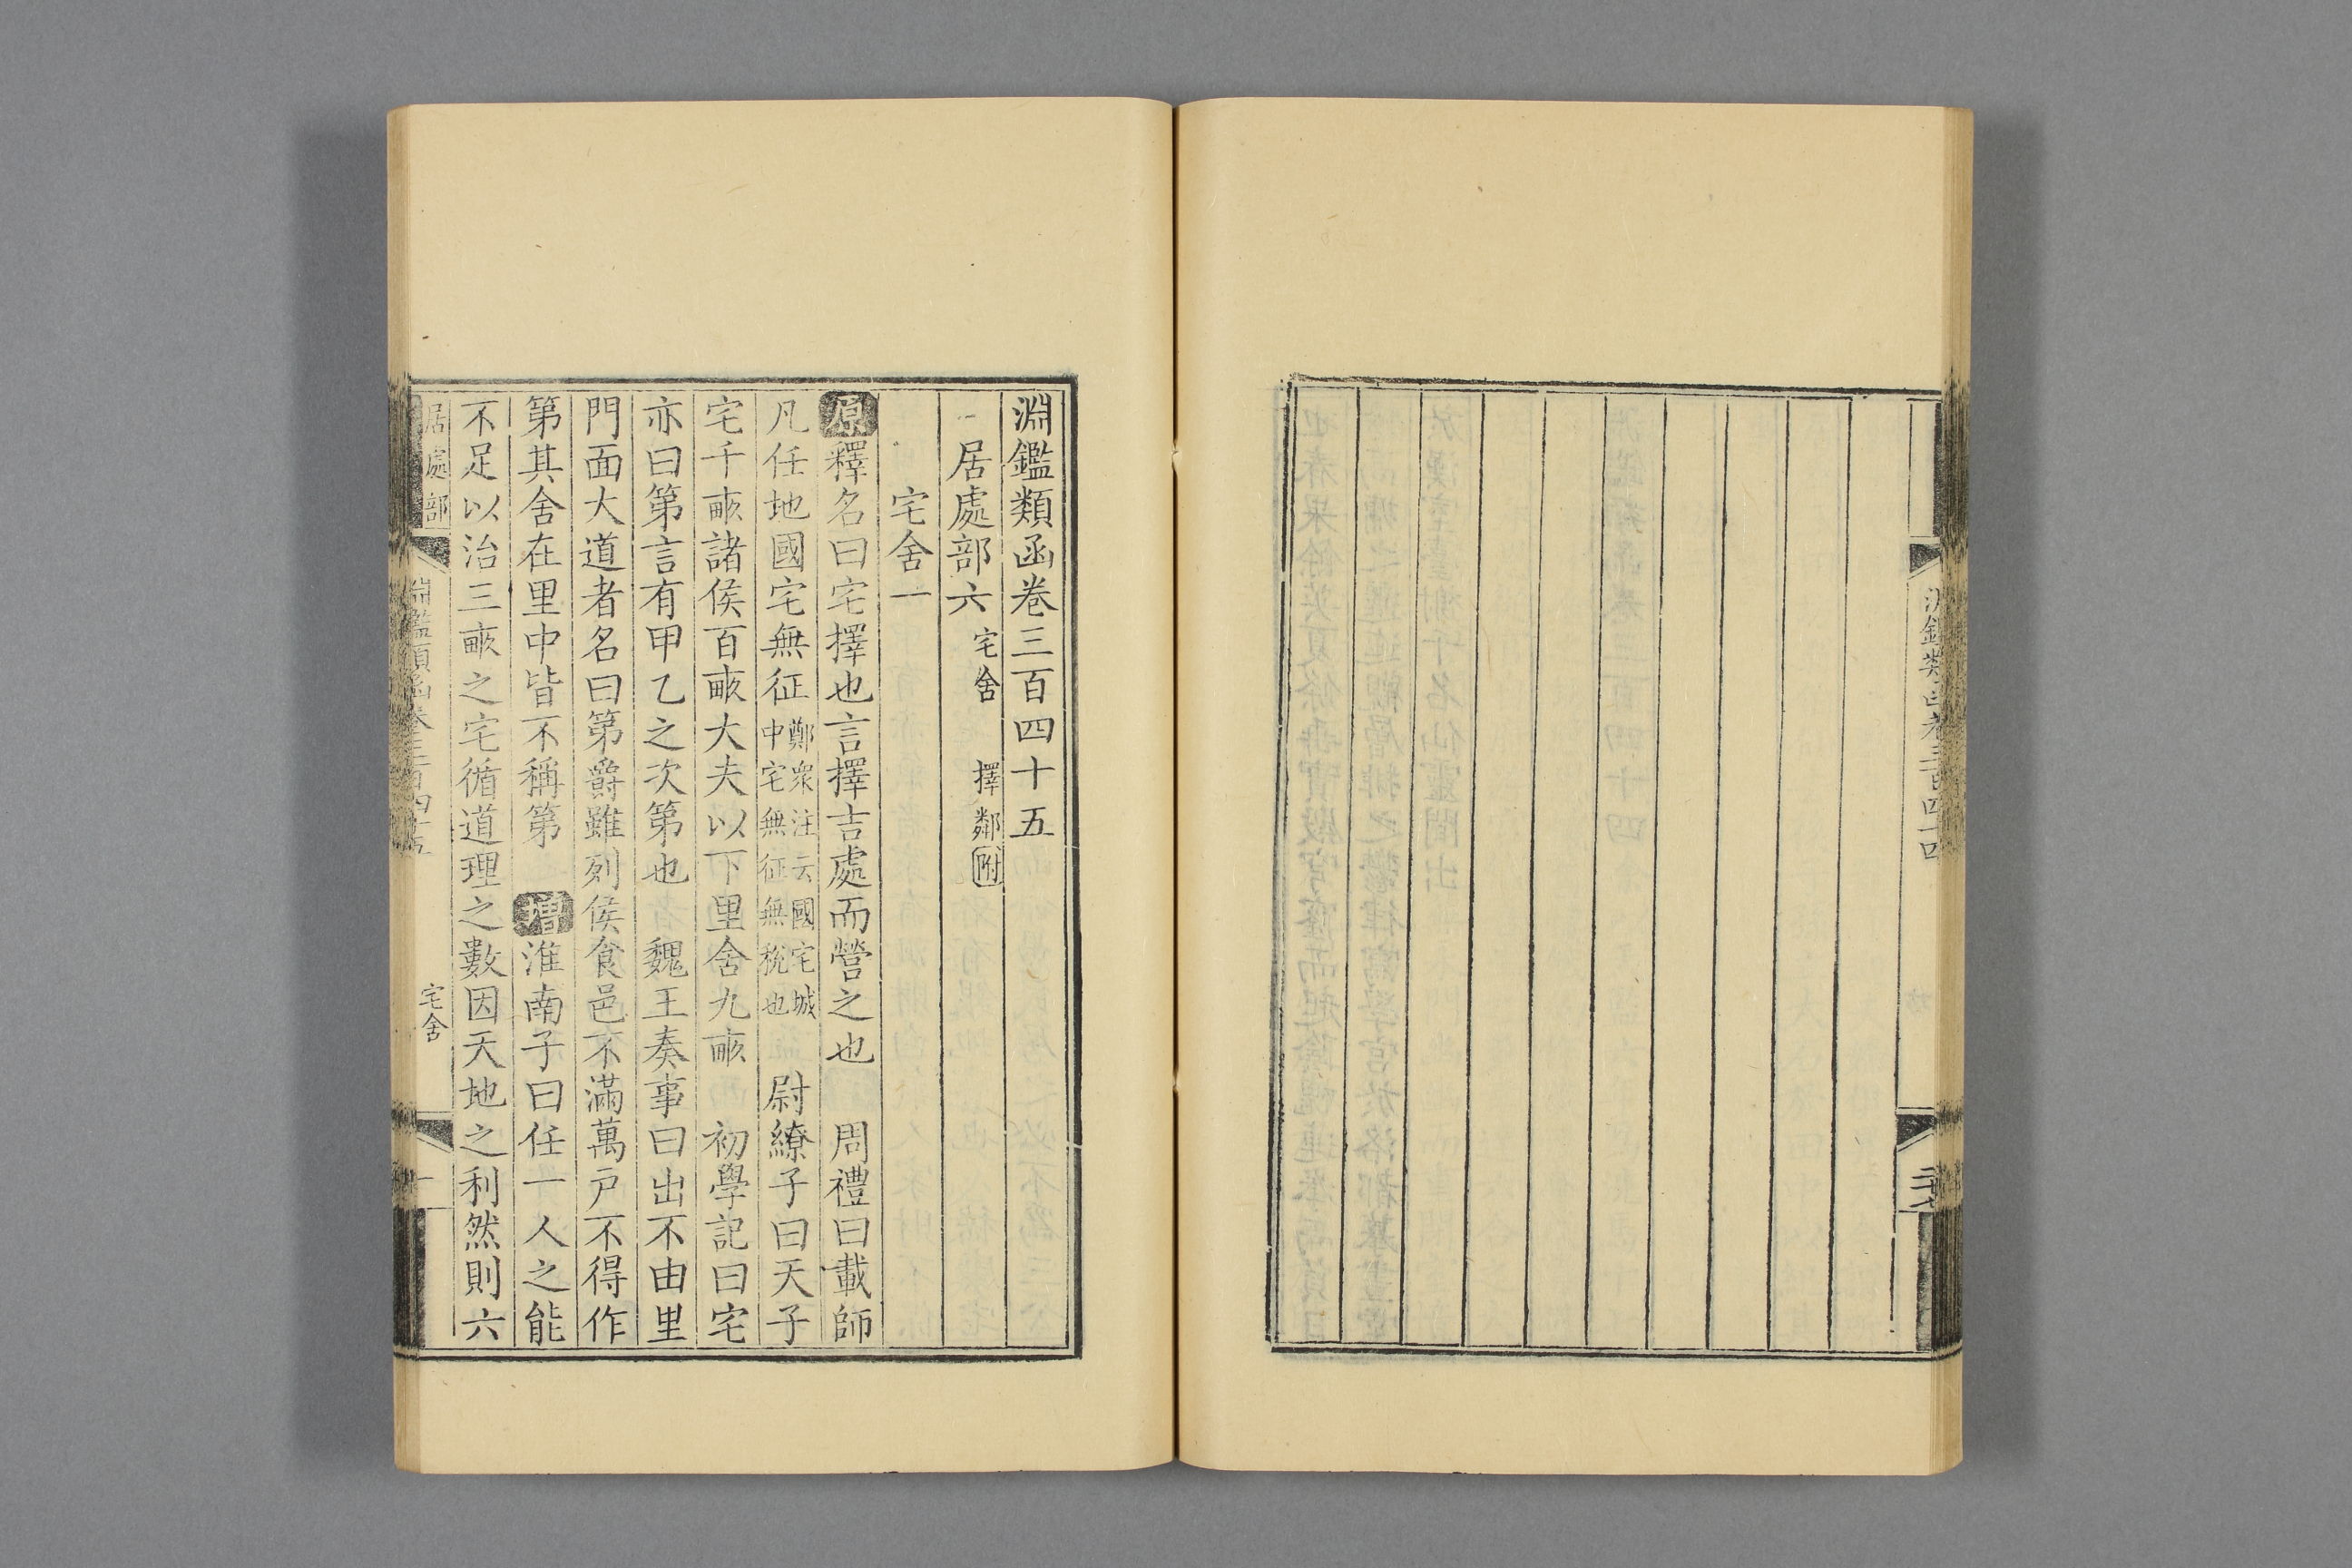 淵鑑類函卷三百四十五
居處部六 宅舍 擇鄰附
宅舍一
原釋名曰宅擇也言擇吉處而營之也 周禮曰載師
凡任地國宅無征鄭衆注云國宅城中宅無征無稅也 尉繚子曰天子
宅千畞諸侯百畞大夫以下里舍九畞 初學記曰宅
亦曰第言有甲乙之次第也 魏王奏事曰出不由里
門面大道者名曰第爵雖列侯食邑不滿萬戸不得作
第其舍在里中皆不稱第 增淮南子曰任一人之能
不足以治三畞之宅循道理之數因天地之利然則六
居處部 淵鑑類函卷三百四十五 宅舍 一
淵鑑類函卷三百四十四